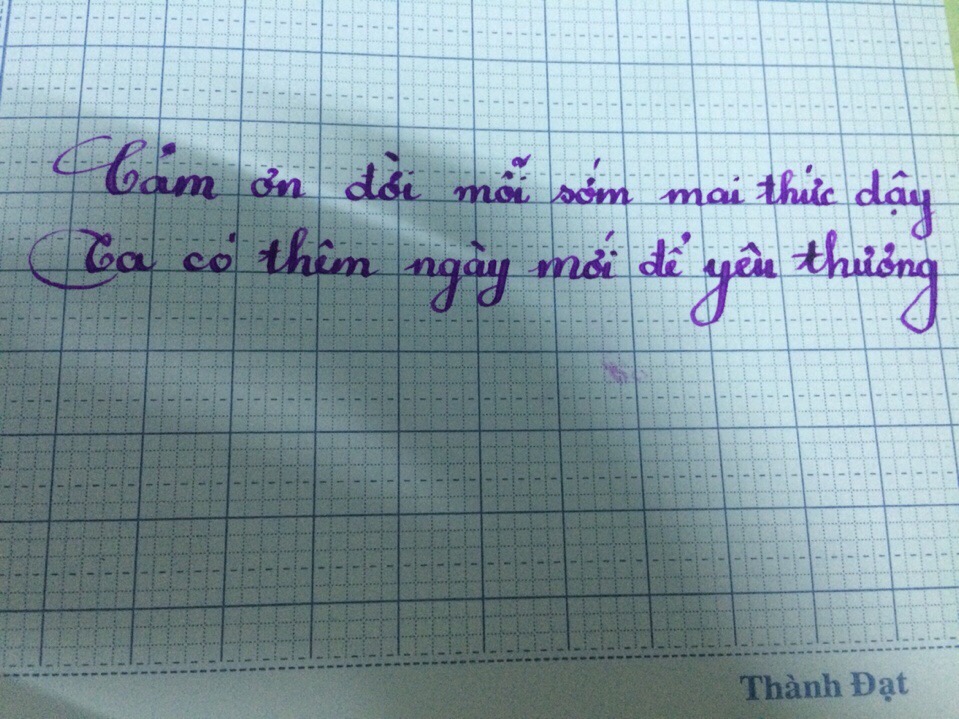 Cảm ơn đời mỗi sớm mai thức dậy
Ta có thêm ngày mới để yêu thương
Thành Đạt